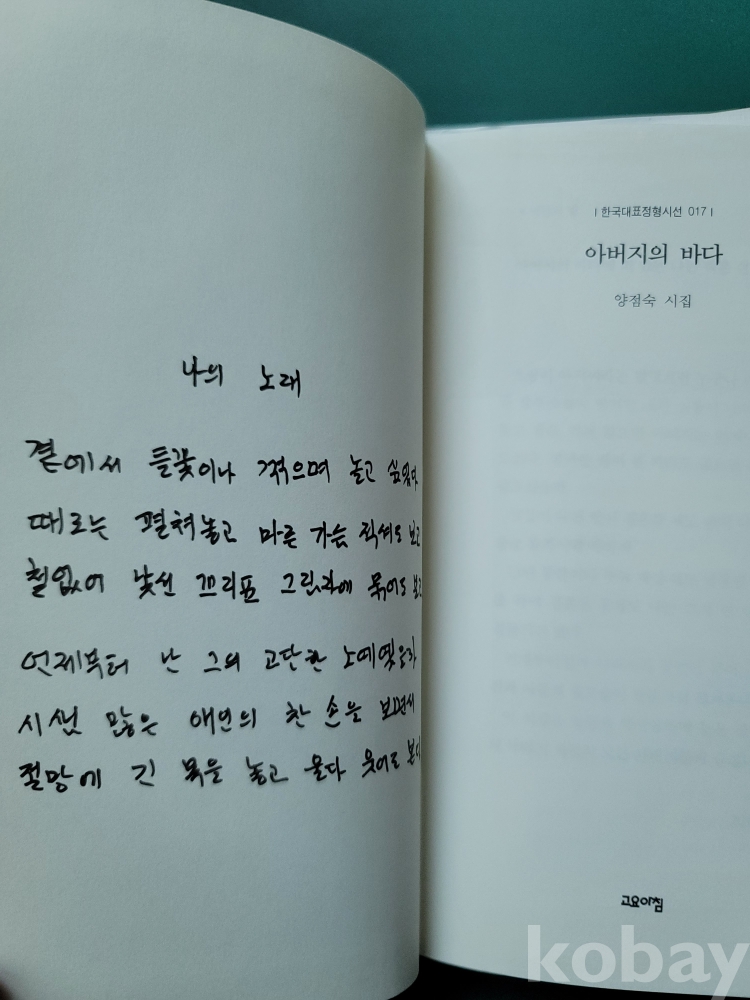 나의 노래
곁에서 들꽃이나 꺾으며 놀고 싶었다
때로는 펼쳐놓고 마른 가슴 적셔도 보고
철없어 낯선 꼬리표 그림자에 묶어도 보고
언제부터 난 그의 고단한 노예였을까
시샘 많은 애인의 찬 손을 보면서
절망에 긴 목을 놓고 울다 웃어도 본다
| 한국대표정형시선 017 |
아버지의 바다
양점숙 시집
고요아침
kobay